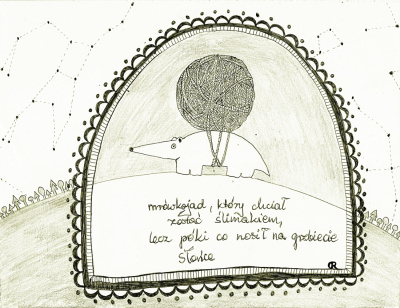 mrówkojad, który chciał
zostać ślimakiem,
lecz póki co nosił na grzbiecie
Słońce